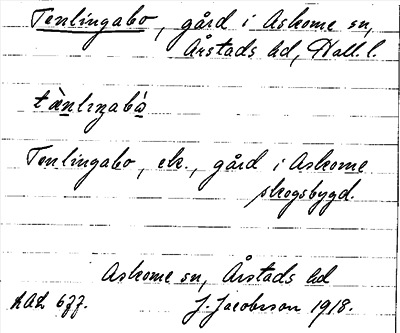 Tenlingabo, gård i Askome sn,
Årstads hd, Hall. l.
tànlıŋabò
Tenlingabo, ek., gård i Askome
skogsbygd.
Askome sn, Årstads hd
J. Jacobsson 1918.